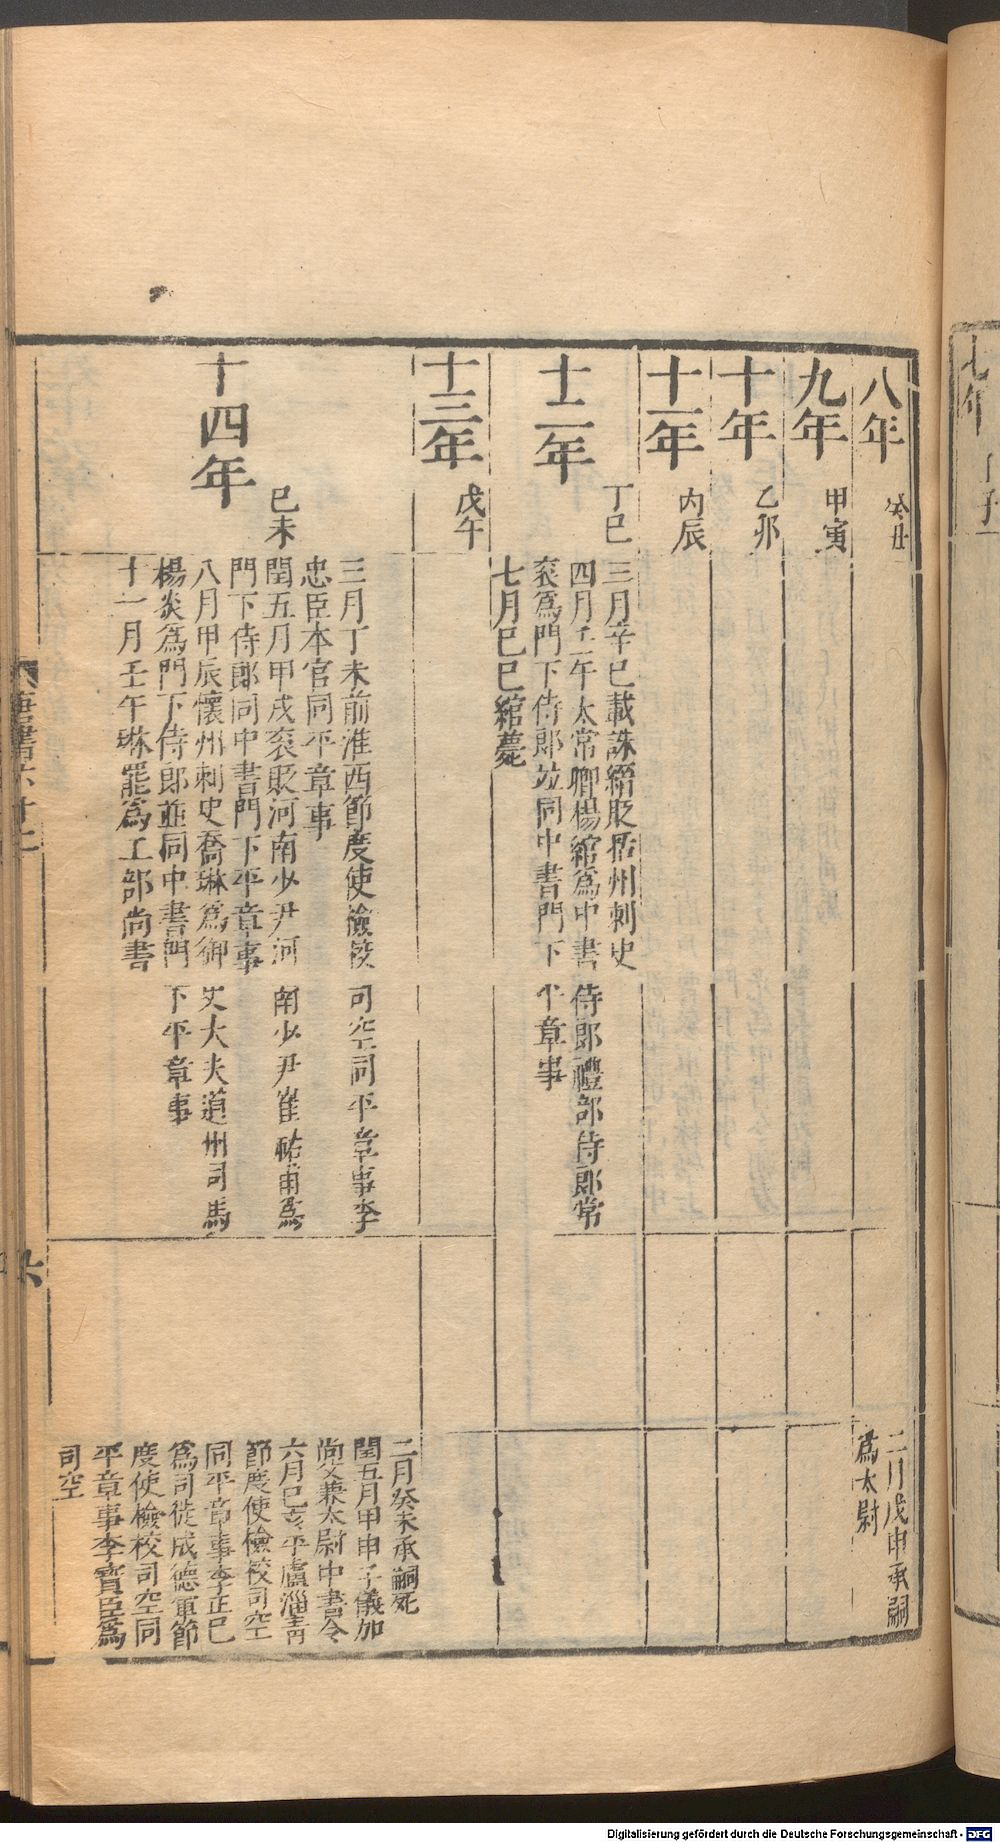 七年
八年
癸丑
二月戊申承嗣
爲太尉
九年
甲寅
十年
乙卯
十一年
丙辰
十二年
丁巳
三月辛巳載誅縉貶括州刺史
四月壬午太常卿楊綰爲中書侍郎禮部侍郎常
袞爲門下侍郎並同中書門下平章事
七月己巳綰薨
十三年
戊午
十四年
己未
三月丁未前淮西節度使檢校司空同平章事李
忠臣本官同平章事
閏五月甲戌袞貶河南少尹河南少尹崔祐甫爲
門下侍郎同中書門下平章事
八月甲辰懷州刺史喬琳爲御史大夫道州司馬
楊炎爲門下侍郎並同中書門下平章事
十一月壬午琳罷爲工部尚書
二月癸未承嗣死
閏五月甲申子儀加
尚父兼太尉中書令
六月己亥平盧淄青
節度使檢校司空
同平章事李正己
爲司徒成德軍節
度使檢校司空同
平章事李寶臣爲
司空
Digitalisierung gefördert durch die Deutsche Forschungsgemeinschaft - DFG